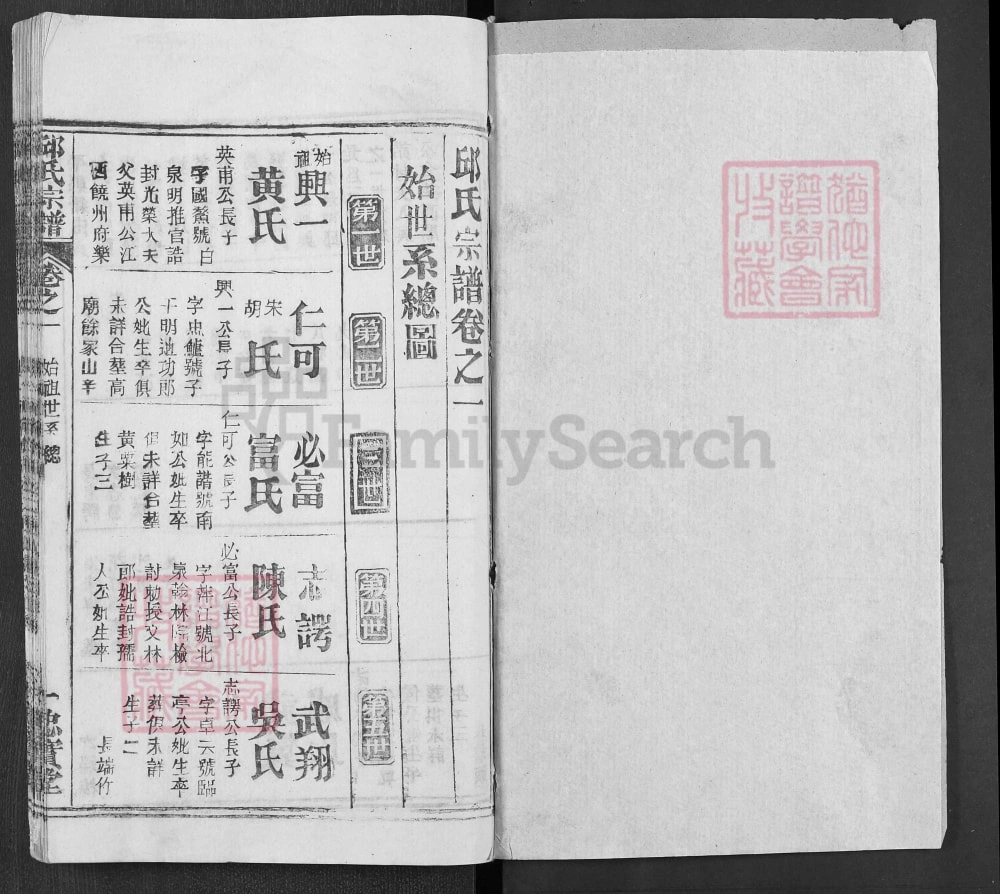 邱氏宗譜卷之一
始世系總圖
第一世
始祖興一
黃氏
英甫公長子
字國鰲號白
泉明推官誥
封光榮大夫
父英甫公江
西饒州府樂
第二世
仁可
朱胡氏
興一公長子
字忠鱸號子
干明迪功郎
公妣生卒俱
未詳合塟高
廟餘冢山辛
第三世
必富
富氏
仁可公長子
字能諧號南
如公妣生卒
俱未詳合塟
黃粟樹
生子三
第四世
志諤
陳氏
必富公長子
字洋江號北
泉翰林院檢
討勅授文林
郎妣誥封孺
人公妣生卒
第五世
武翔
吳氏
志諤公長子
字卓六號臨
亭公妣生卒
葬俱未詳
生子二
長端竹
邱氏宗譜
卷之一
始祖世系總
忠實堂
猶他家
譜學會
收藏
FamilySearch